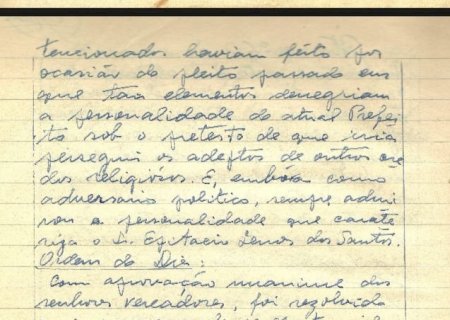 tencionados haviam feito por
ocasião do pleito passado em
que tais elementos denegriam
a personalidade do atual Prefei
to sob o pretesto de que iria
perseguir os adeptos de outros cre
dos religiosos. E, embóra como
adversario politico, sempre admi
rou a personalidade que caracte
riza o S. Epitacio Lemos dos Santos.
Ordem do Dia:
Com aprovação unanime dos
senhores vereadores, foi rezolvido